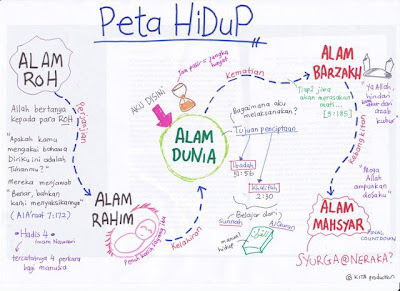 Peta HiDuP
ALAM
ROH
Allah bertanya
kepada para ROH
"Apakah kamu
mengakui bahawa
Diriku ini adalah
Tuhanmu?"
Mereka menjawab
"Benar, bahkan
kami menyaksikannya"
(Al A'raf 7:172)
perjanjian
ALAM
RAHIM
Penuh kasih sayang ibu
• Hadis 4 •
Imam Nawawi
tercatatnya 4 perkara
bagi manusia
Kelahiran
AKU DISINI
Jam pasir = jangka
hayat
ALAM
DUNIA
Bagaimana aku
melaksanakan?
Tujuan penciptaan
Ibadah
51:56
Khalifah
2:30
Belajar dari:
Sunnah
AlQuran
manual
hidup
Kematian
Tiap2 jiwa
akan merasakan
mati...
[3:185]
ALAM
BARZAKH
"Ya Allah,
hindari
kami dari
azab
kubur"
Kebangkitan
"Moga
Allah
ampunkan
dosaku"
ALAM
MAHSYAR
FINAL
COUNTDOWN
SYURGA@NERAKA?
© KITA production